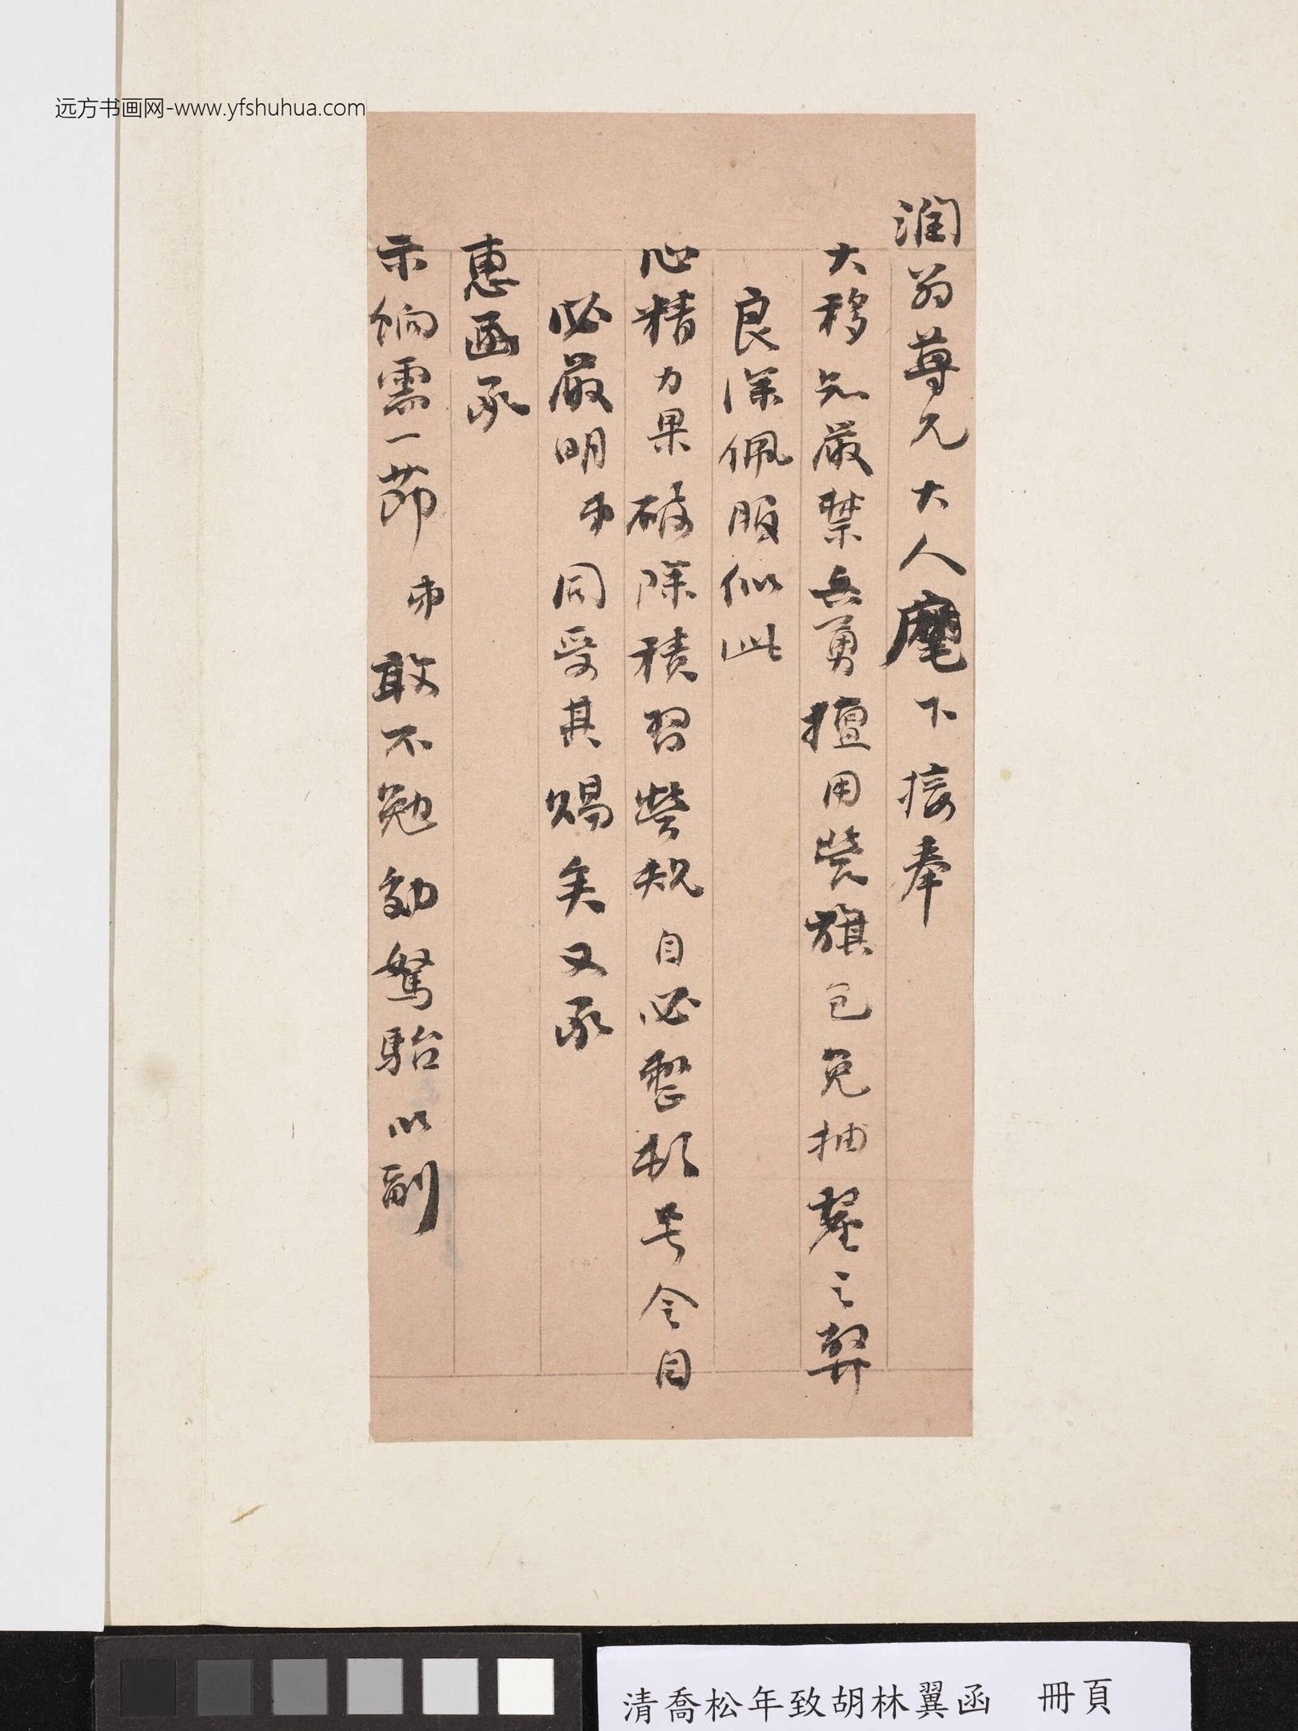 远方书画网-www.yfshuhua.com
潤翁尊兄大人麾下接奉
大移知嚴禁兵勇擅用營旗包免抽釐之弊
良深佩服似此
心精力果破除積習營規自必整肅号令自
必嚴明弟同受其賜矣又承
惠函承
示餉需一節弟敢不勉効駑駘以副
清喬松年致胡林翼函 冊頁